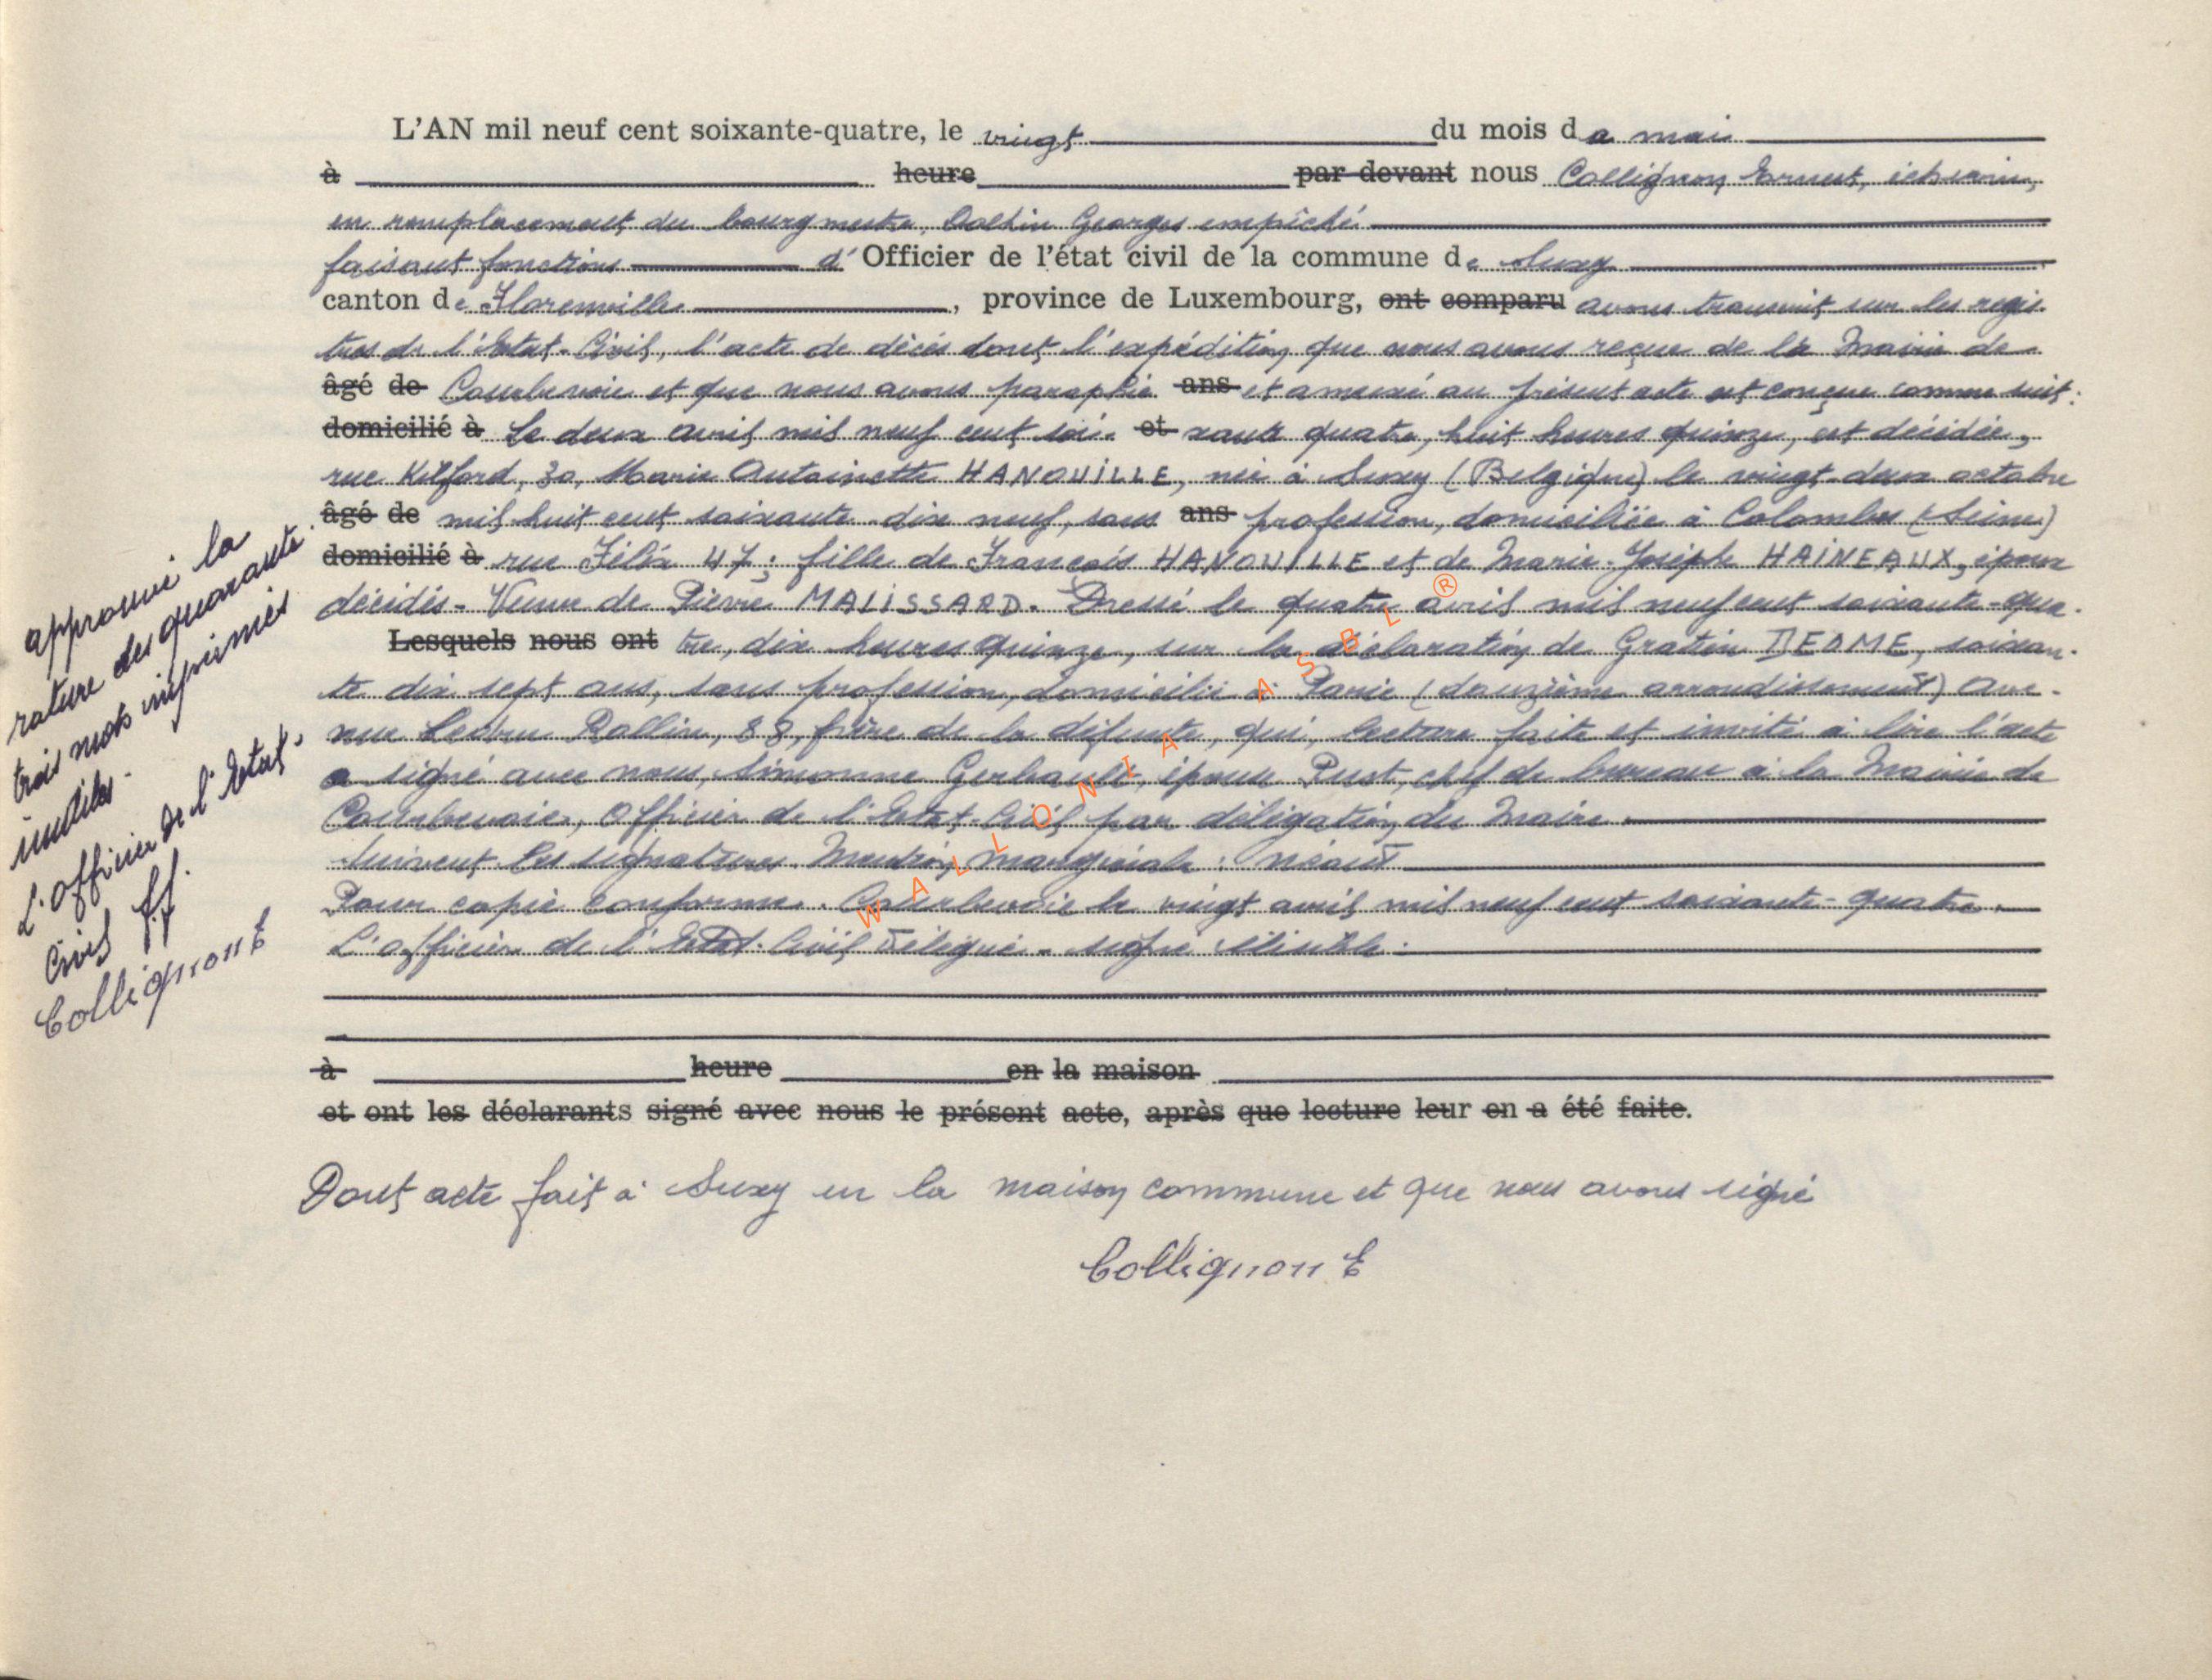 L'AN mil neuf cent soixante-quatre, le vingt du mois de mai
à heure par devant nous Collignon Ernest, échevin,
en remplacement du bourgmestre, Georges empêché
faisant fonctions d'Officier de l'état civil de la commune de Suxy
canton de Florenville, province de Luxembourg, ont comparu avons transcrit sur les regis-
tres de l'Etat-Civil, l'acte de décès dont l'expédition que nous avons reçue de la Mairie de
âgé de Courbevoie et que nous avons paraphée ans et annexé au présent acte est conçue comme suit:
domicilié à Le deux avril mil neuf cent soi- et xante quatre, huit heures quinze, est décédée,
rue Kilford, 30, Marie Antoinette HANOUILLE, née à Suxy (Belgique) le vingt-deux octobre
âgé de mil huit cent soixante-dix neuf, sans ans profession, domiciliée à Colombes (Seine)
domicilié à rue Félix 47; fille de François HANOUILLE et de Marie-Joséph HAINEAUX, époux
décédés. Veuve de Pierre MALISSARD. Dressé le quatre avril mil neuf cent soixante-qua-
Lesquels nous ont tre, dix heures quinze, sur la déclaration de Gratien DEOME, soixan-
te dix sept ans, sans profession, domicilié à Paris (douzième arrondissement) Ave-
nue Ledru Rollin, 88, frère de la défunte, qui, lecture faite et invité à lire l'acte
a signé avec nous, Simonne Gerbault, épouse chef de bureau à la Mairie de
Courbevoie, Officier de l'Etat-Civil par délégation du Maire.
Suivent les signatures. Mention marginale: néant
Pour copie conforme. Courbevoie le vingt avril mil neuf cent soixante-quatre.
L'officier de l'Etat-Civil délégué. signé illisible.
à heure en la maison
et ont les déclarants signé avec nous le présent acte, après que lecture leur en a été faite.
Dont acte fait à Suxy en la maison commune et que nous avons signé
Collignon E
approuvé la
rature des quarante
trois mots imprimés
inutiles.
L'officier de l'Etat-
Civil ff.
Collignon E
WALLONIA ASBL ®